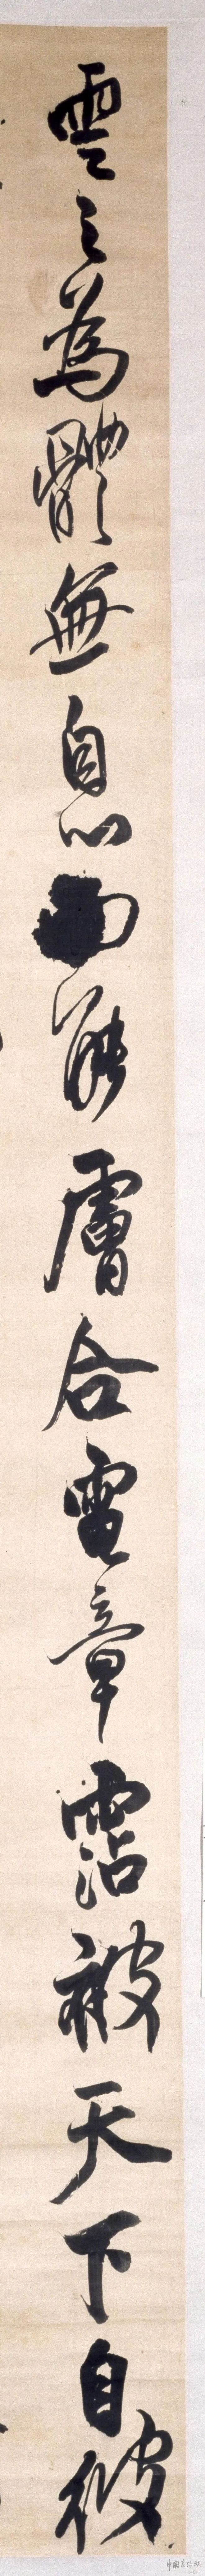 雲之為體無息能膚合電章霑被天下自彼